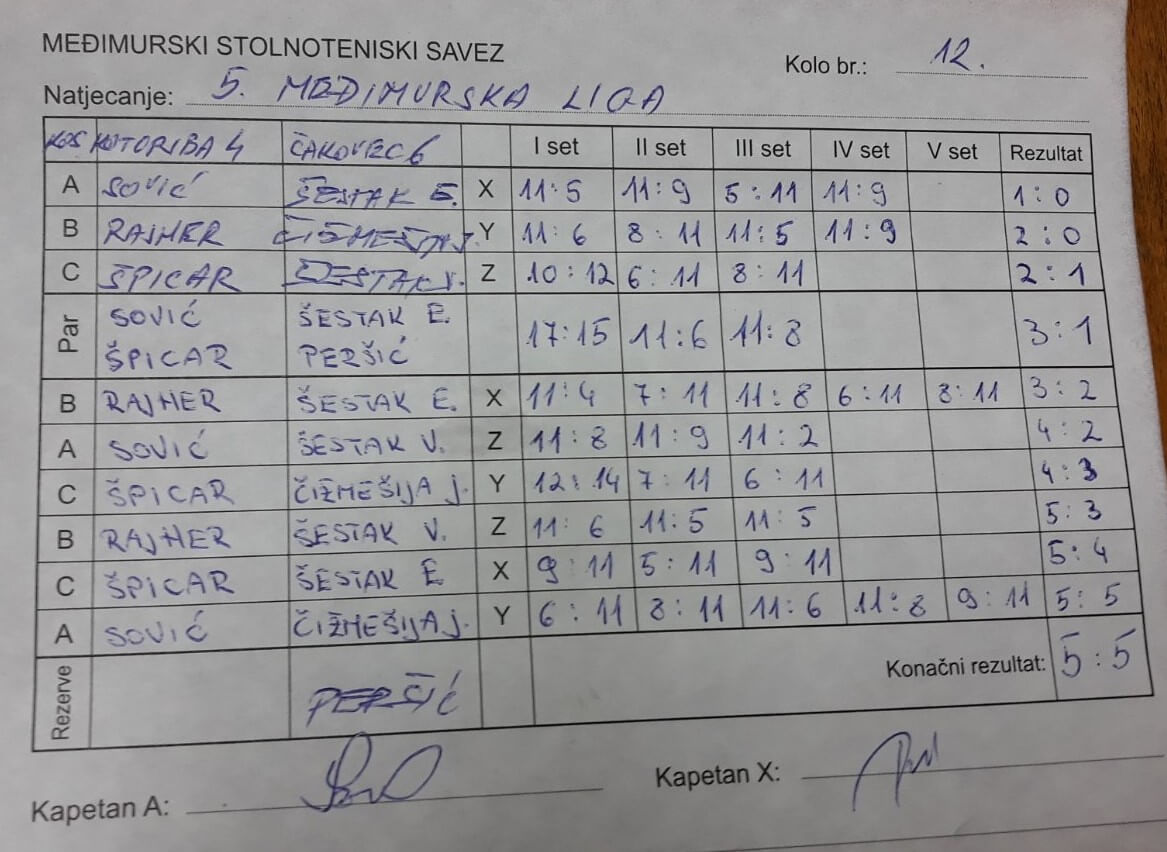 MEĐIMURSKI STOLNOTENISKI SAVEZ
Kolo br.: 12.
Natjecanje: 5. MEĐIMURSKA LIGA
KOS KOTORIBA 4 ČAKOVEC 6 I set II set III set IV set V set Rezultat
A SOVIĆ ŠESTAK E. X 11:5 11:9 5:11 11:9 1:0
B RAJHER ČIŽMEŠIJA J. Y 11:6 8:11 11:5 11:9 2:0
C ŠPICAR ŠESTAK V. Z 10:12 6:11 8:11 2:1
Par SOVIĆ ŠESTAK E. 17:15 11:6 11:8 3:1
ŠPICAR PERŠIĆ
B RAJHER ŠESTAK E. X 11:4 7:11 11:8 6:11 8:11 3:2
A SOVIĆ ŠESTAK V. Z 11:8 11:9 11:2 4:2
C ŠPICAR ČIŽMEŠIJA J. Y 12:14 7:11 6:11 4:3
B RAJHER ŠESTAK V. Z 11:6 11:5 11:5 5:3
C ŠPICAR ŠESTAK E X 9:11 5:11 9:11 5:4
A SOVIĆ ČIŽMEŠIJA J. Y 6:11 8:11 11:6 11:8 9:11 5:5
Rezerve PERŠIĆ Konačni rezultat: 5:5
Kapetan A: Kapetan X: